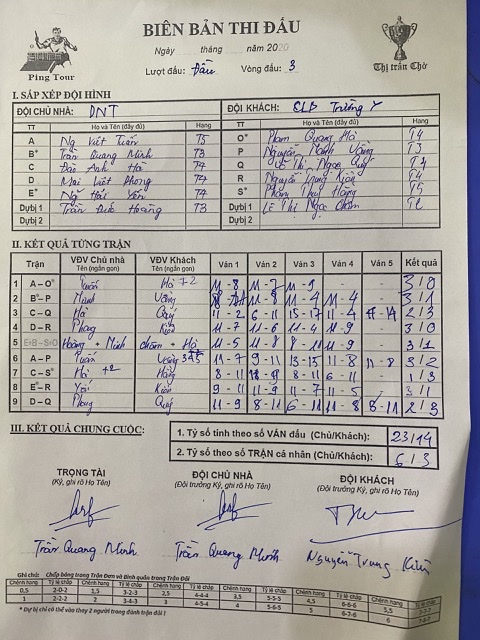 BIÊN BẢN THI ĐẤU
Ngày tháng năm 2020
Lượt đấu: Đầu Vòng đấu: 3
Ping Tour
Thị trấn Thờ
I. SẮP XẾP ĐỘI HÌNH
ĐỘI CHỦ NHÀ: DNT ĐỘI KHÁCH: CLB Trường Y
TT Họ và Tên (đầy đủ) Hạng TT Họ và Tên (đầy đủ) Hạng
A Ng Viết Tiến T5 O* Phạm Quang Hà T4
B* Trần Quang Minh T3 P Nguyễn Mạnh Vàng T3
C Đào Anh Hà T4 Q Lê Thị Ngọc Quý T4
D Mai Việt Phong T4 R Nguyễn Trung Kiên T4
E* Ng Hải Yến T4 S* Phạm Thuý Hằng T5
Dự bị 1 Trần Đức Hoàng T3 Dự bị 1 Lê Thị Ngọc Châm T2
Dự bị 2 Dự bị 2
II. KẾT QUẢ TỪNG TRẬN
Trận VĐV Chủ nhà VĐV Khách Ván 1 Ván 2 Ván 3 Ván 4 Ván 5 Kết quả
Tên (ngắn gọn) Tên (ngắn gọn)
1 A – O* Hà +2 11 - 8 11 - 7 11 - 9 - - 3 / 0
2 B* – P Minh 11 - 8 11 - 4 11 - 4 - 3 / 1
3 C – Q Hà Quý 11 - 2 6 - 11 15 - 17 11 - 4 - 14 2 / 3
4 D – R Phong Kiên 11 - 7 11 - 6 11 - 4 - 3 / 0
5 Hoàng + Minh Châm + Hà 11 - 5 11 - 8 11 - 9 - 3 / 1
6 A – P 11 - 7 11 - 9 13 - 15 11 - 8 3 / 2
7 C – S* Hà +2 Hằng 8 - 11 8 - 11 6 - 11 - 1 / 3
8 E* – R Yến Kiên 9 - 11 11 - 9 11 - 7 11 - 5 - 3 / 1
9 D – Q Phong Quý 11 - 9 8 - 11 6 - 11 11 - 8 2 / 3
III. KẾT QUẢ CHUNG CUỘC:
1. Tỷ số tính theo số VÁN đấu (Chủ/Khách): 23 / 14
2. Tỷ số theo số TRẬN cá nhân (Chủ/Khách): 6 / 3
TRỌNG TÀI ĐỘI CHỦ NHÀ ĐỘI KHÁCH
(Ký, ghi rõ Họ Tên) (Đội trưởng Ký, ghi rõ Họ Tên) (Đội trưởng Ký, ghi rõ Họ Tên)
Trần Quang Minh Trần Quang Minh Nguyễn Trung Kiên
Ghi chú: Chấp bóng trong Trận Đơn và Bình quân trong Trận Đôi
Chênh hạng Tỷ lệ chấp Chênh hạng Tỷ lệ chấp Chênh hạng Tỷ lệ chấp Chênh hạng Tỷ lệ chấp Chênh hạng Tỷ lệ chấp Chênh hạng Tỷ lệ chấp
0,5 2-0-2 1,5 3-2-3 2,5 4-4-4 3,5 5-5-5
1 2-2-2 2 3-3-3 3 4-5-4
* Dự bị chỉ có thể vào thay 2 người trong đánh trận đôi !